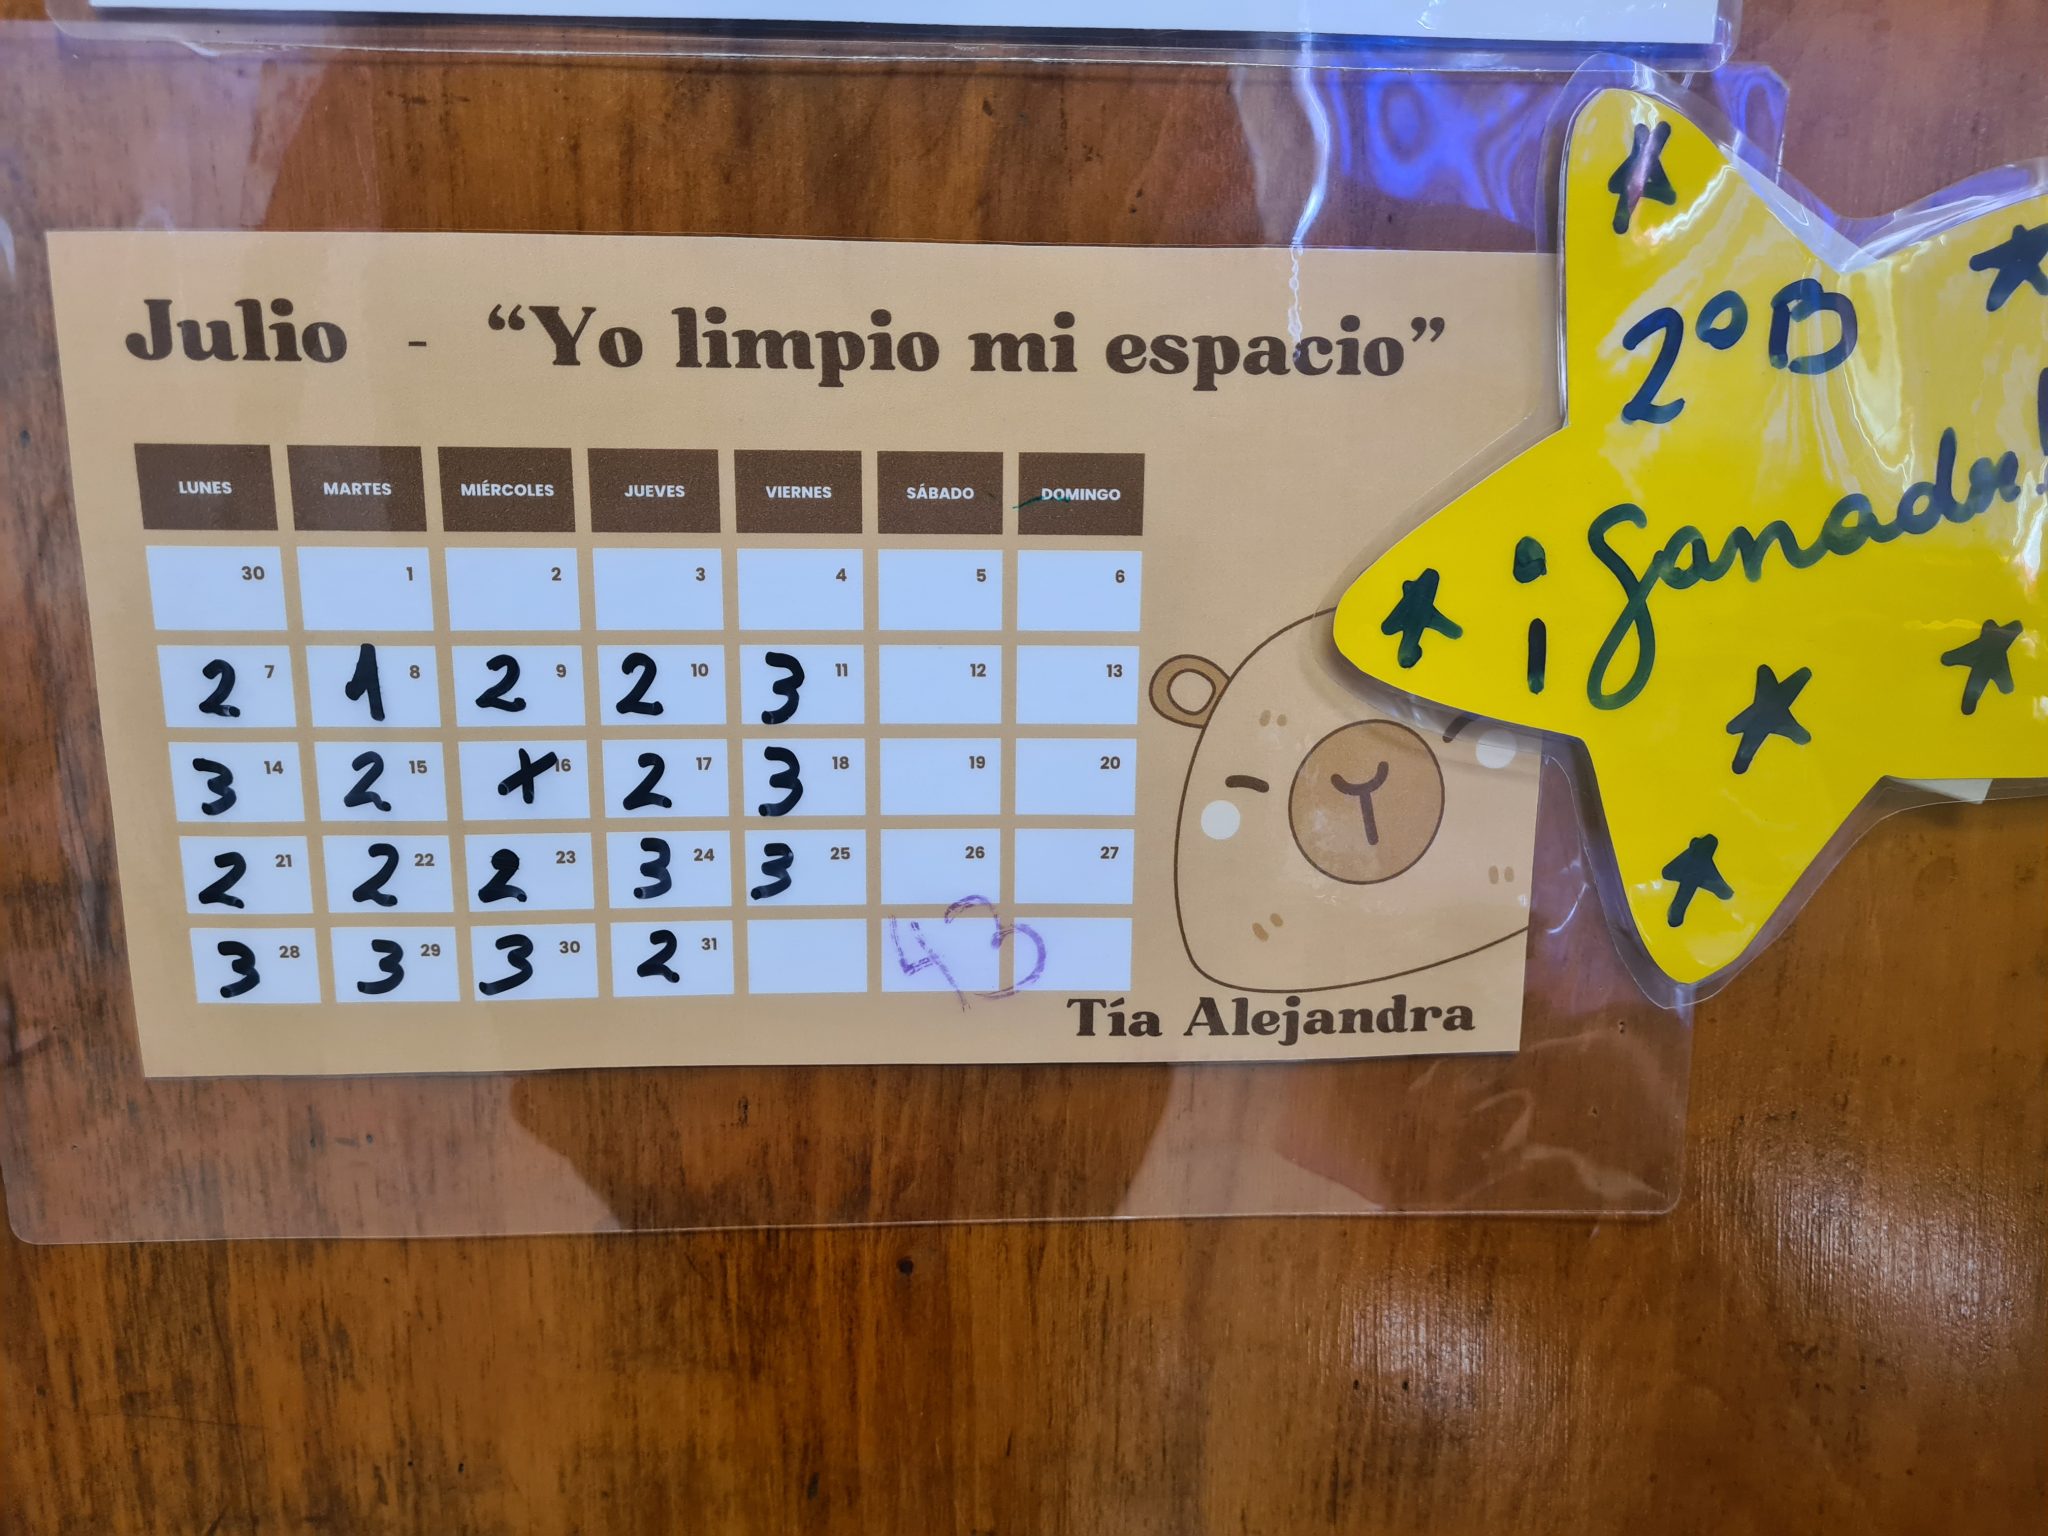 Julio - “Yo limpio mi espacio”
LUNES MARTES MIÉRCOLES JUEVES VIERNES SÁBADO DOMINGO
30 1 2 3 4 5 6
2 7 1 8 2 9 2 10 3 11 12 13
3 14 2 15 x 16 2 17 3 18 19 20
2 21 2 22 2 23 3 24 3 25 26 27
3 28 3 29 3 30 2 31 43
Tía Alejandra
2º B